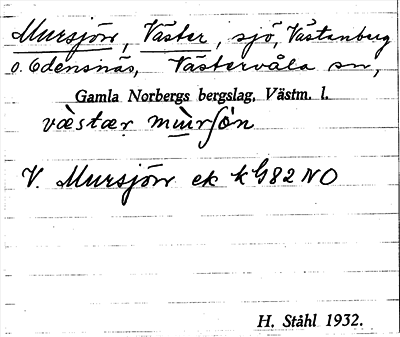 Mursjön, Väster, sjö, Västanberg
o. Odensnäs, Västervåla sn,
Gamla Norbergs bergslag, Västm. l.
væ̀stær mùrʃön
V. Mursjön ek k G82 NO
H. Ståhl 1932.